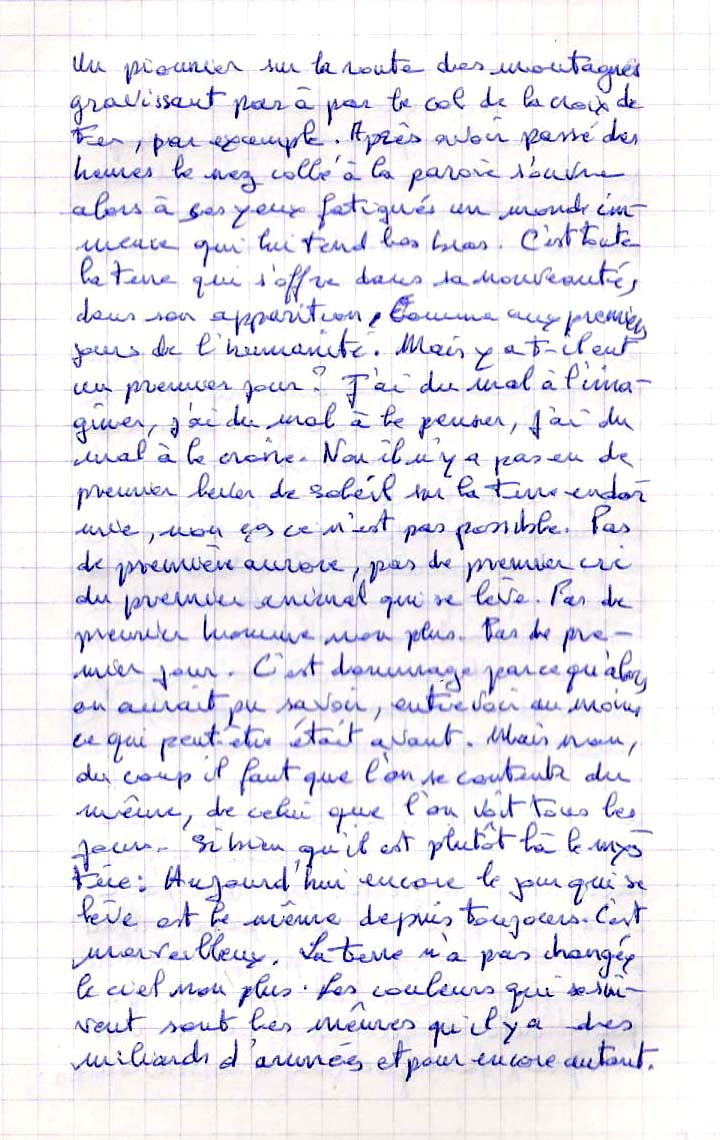 Un pionnier sur la route des montagnes
gravissant pas à pas le col de la croix de
Fer, par exemple. Après avoir passé des
heures le nez collé à la paroie s'ouvre
alors à ses yeux fatigués un monde im-
mense qui lui tend les bras. C'est toute
la Terre qui s'offre dans sa nouveauté,
dans son apparition, Comme aux premiers
jours de l'humanité. Mais y a t-il eut
un premier jour? J'ai du mal à l'ima-
giner, j'ai du mal à le penser, j'ai du
mal à le croire. Non il n'y a pas eu de
premier lever de soleil sur la Terre endor
mie, non ça ce n'est pas possible. Pas
de première aurore, pas de premier cri
du premier animal qui se lève. Pas de
premier homme non plus. Pas de pre-
mier jour. C'est dommage parce qu'alors
on aurait pu savoir, entrevoir au moins
ce qui peut-être était avant. Mais non,
du coup il faut que l'on se contente du
même, de celui que l'on voit tous les
jours. Si bien qu'il est plutôt là le mys
tère: Aujourd'hui encore le jour qui se
lève est le même depuis toujours. C'est
merveilleux. La terre n'a pas changé,
le ciel non plus. Les couleurs qui se sui-
vent sont les mêmes qu'il y a des
miliards d'années et pour encore autant.